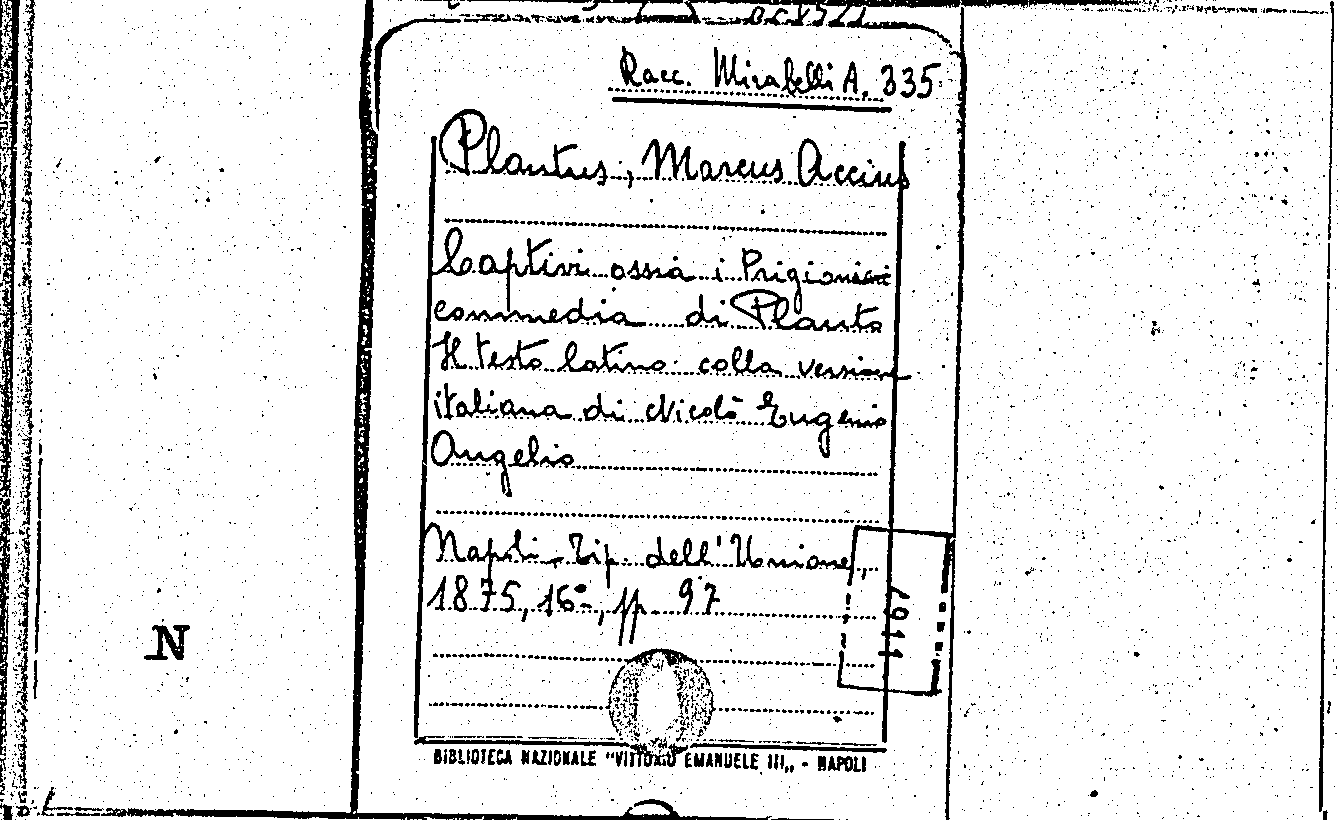 Racc. Mirabelli A. 335
Plautus, Marcus Accius
Captivi ossia i Prigionieri
commedia di Plauto
Il testo latino colla versione
italiana di Nicolò Eugenio
Angelio
Napoli, Tip. dell'Unione,
1875, 16º, pp. 97
1107
N
BIBLIOTECA NAZIONALE "VITTORIO EMANUELE III„ - NAPOLI